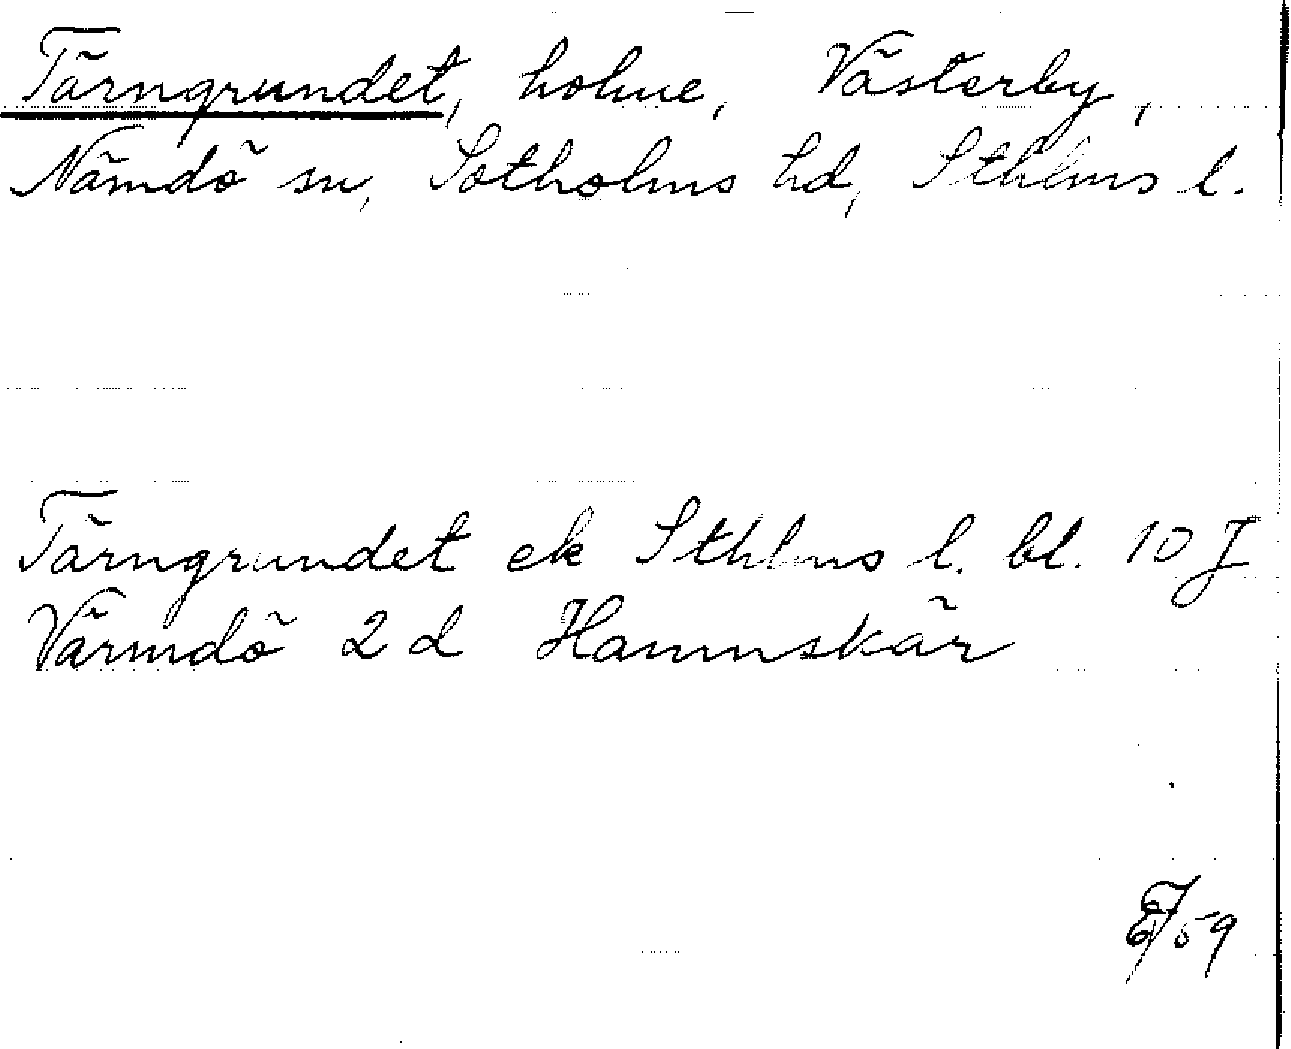 Tärngrundet, holme, Västerby,
Nämdö sn, Sotholms hd, Sthlms l.
Tärngrundet ek Sthlms l. bl. 10 J
Värmdö 2 d Hammskär
59